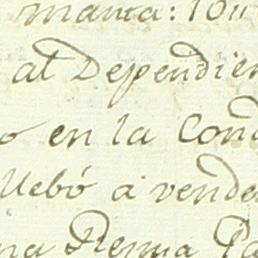 manta: 10
al Dependien
o en la Cond
llebó a vende
na Resma Pa